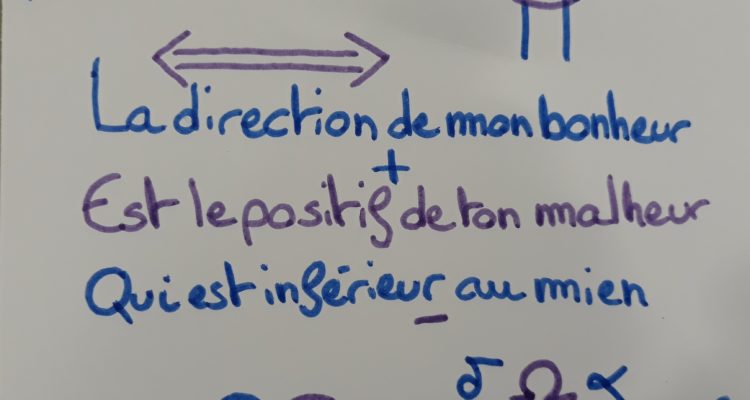 La direction de mon bonheur
+
Est le positif de ton malheur
Qui est inférieur au mien
-
δ Ω α